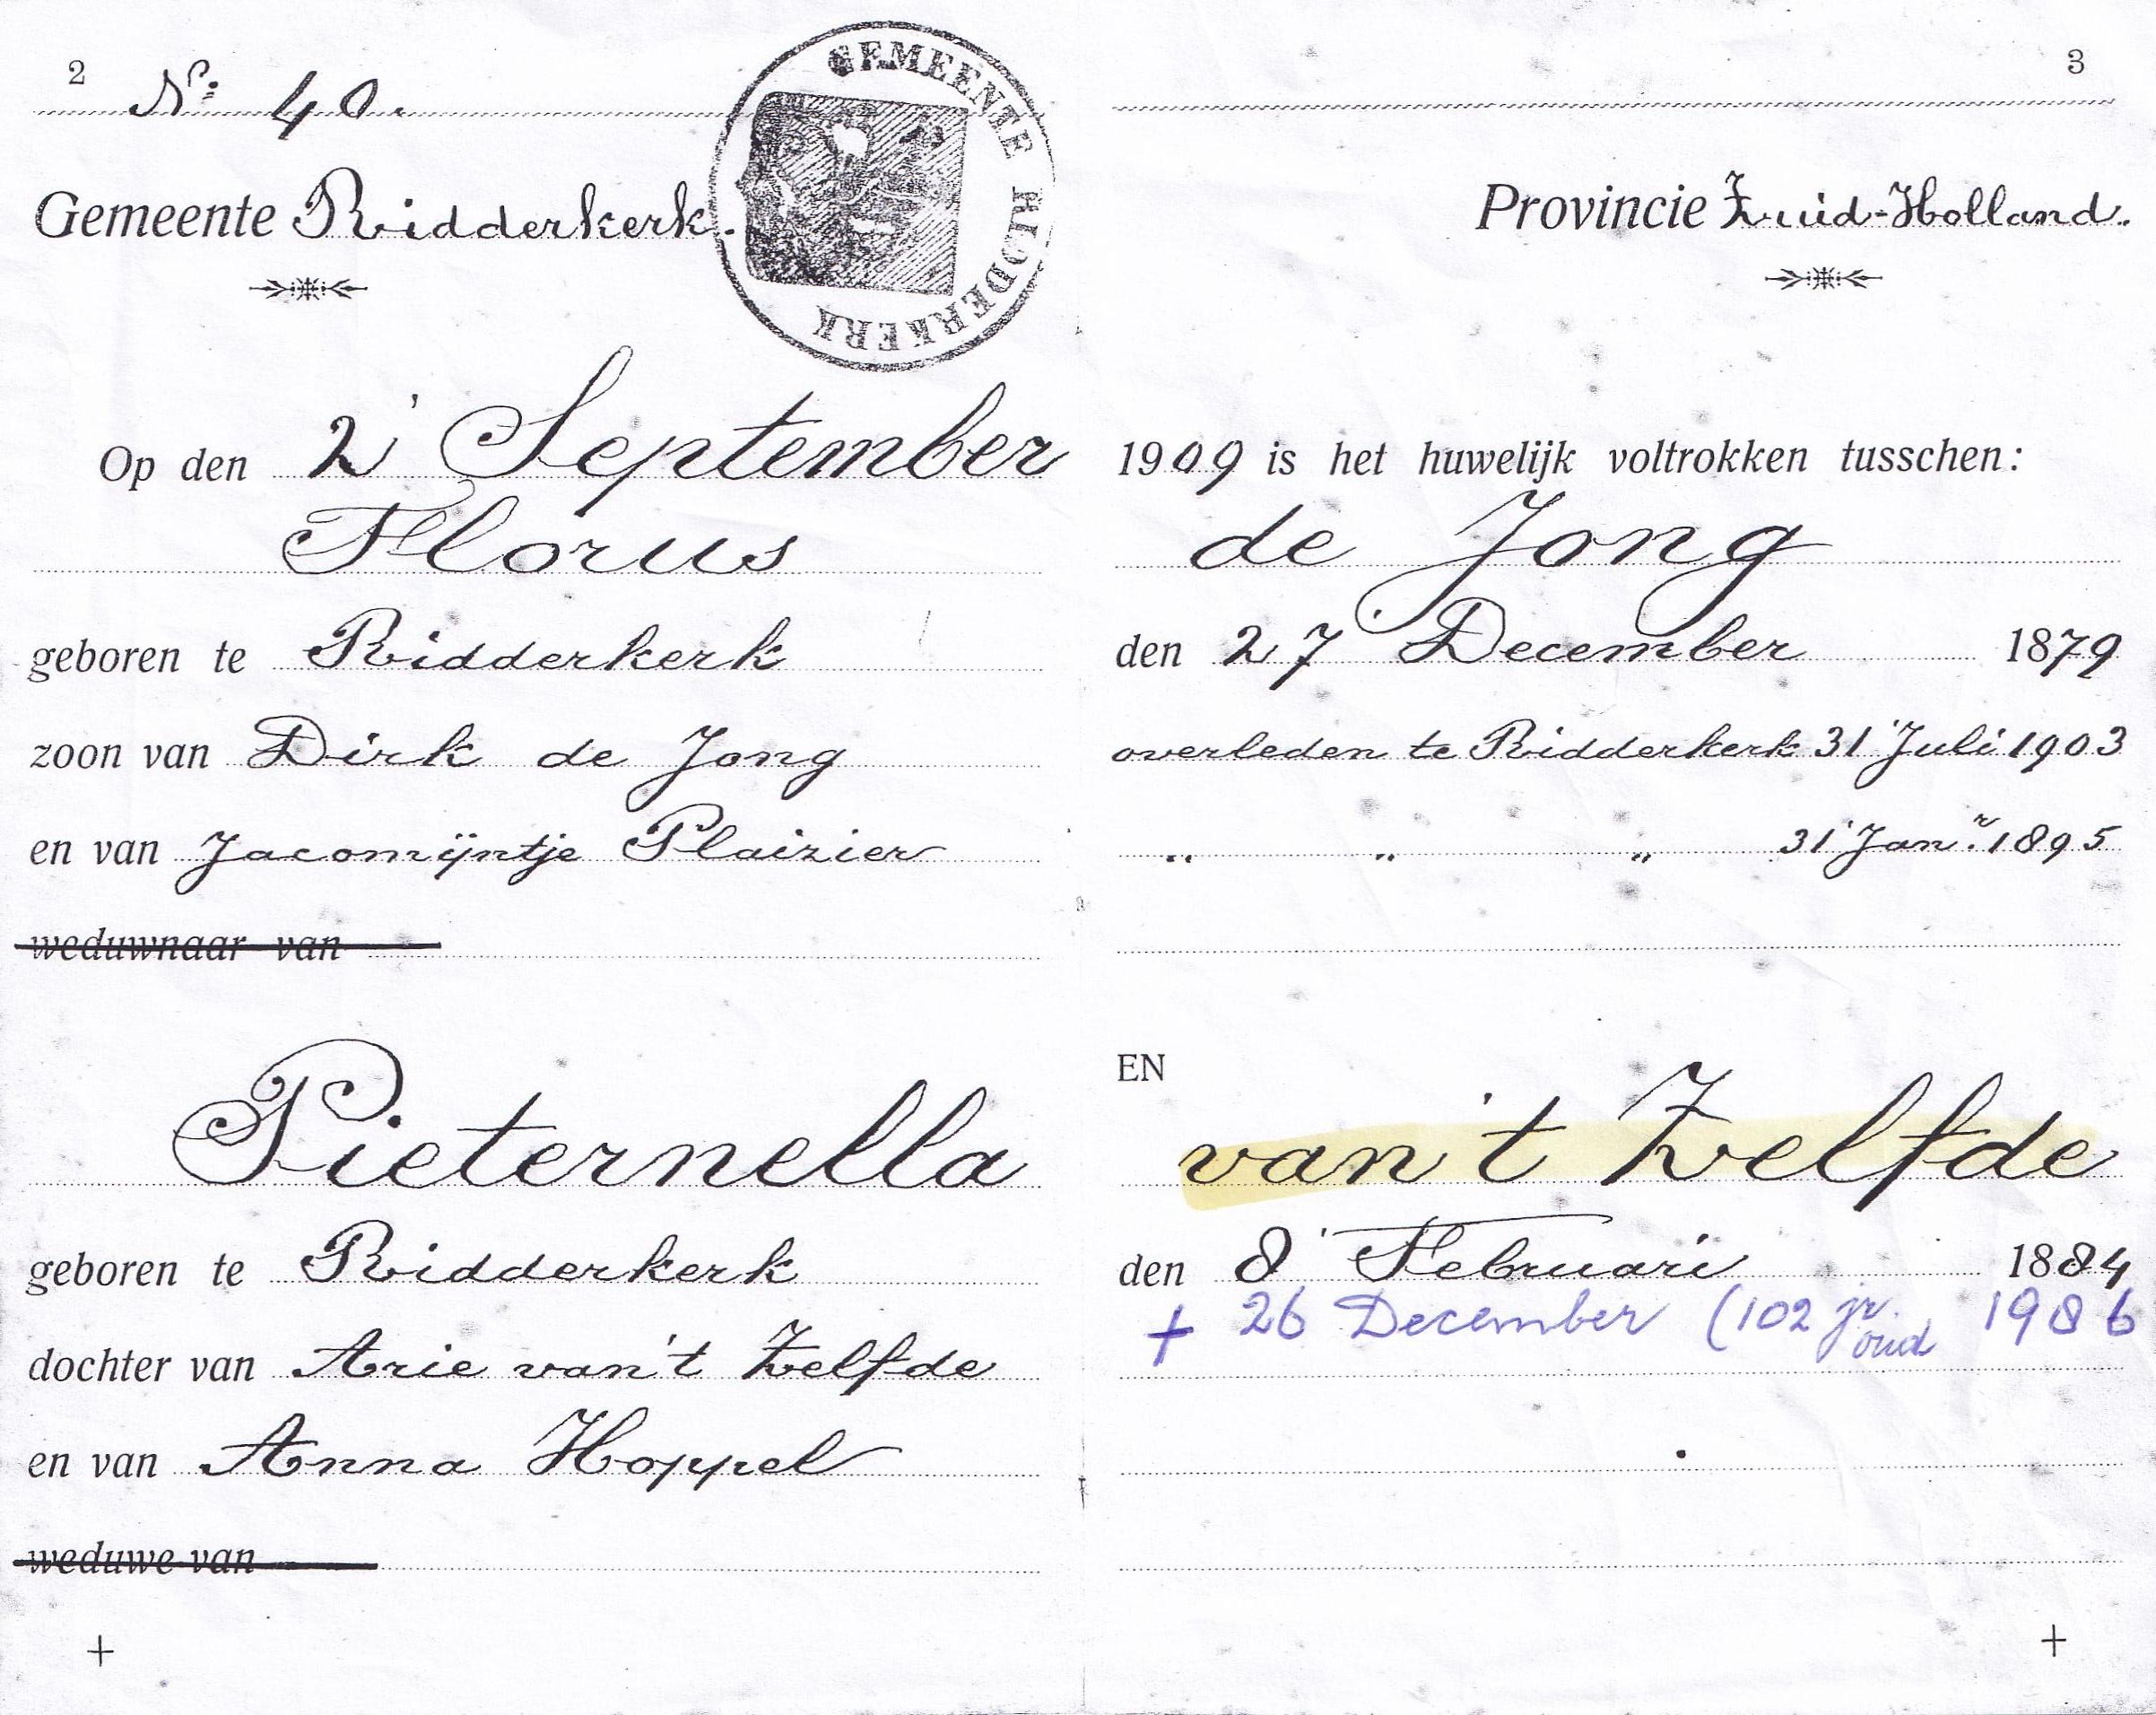 2 3
Nº: 40.
GEMEENTE RIDDERKERK
Gemeente Ridderkerk. Provincie Zuid-Holland.
Op den 2' September 1909 is het huwelijk voltrokken tusschen:
Florus de Jong
geboren te Ridderkerk den 27' December 1879
zoon van Dirk de Jong overleden te Ridderkerk 31' Juli 1903
en van Jacomijntje Plaizier " " " 31' Janr. 1895
weduwnaar van
EN
Pieternella van 't Zelfde
geboren te Ridderkerk den 8' Februari 1884
+ 26 December (102 jr. oud 1986
dochter van Arie van 't Zelfde
en van Anna Hoppel
weduwe van